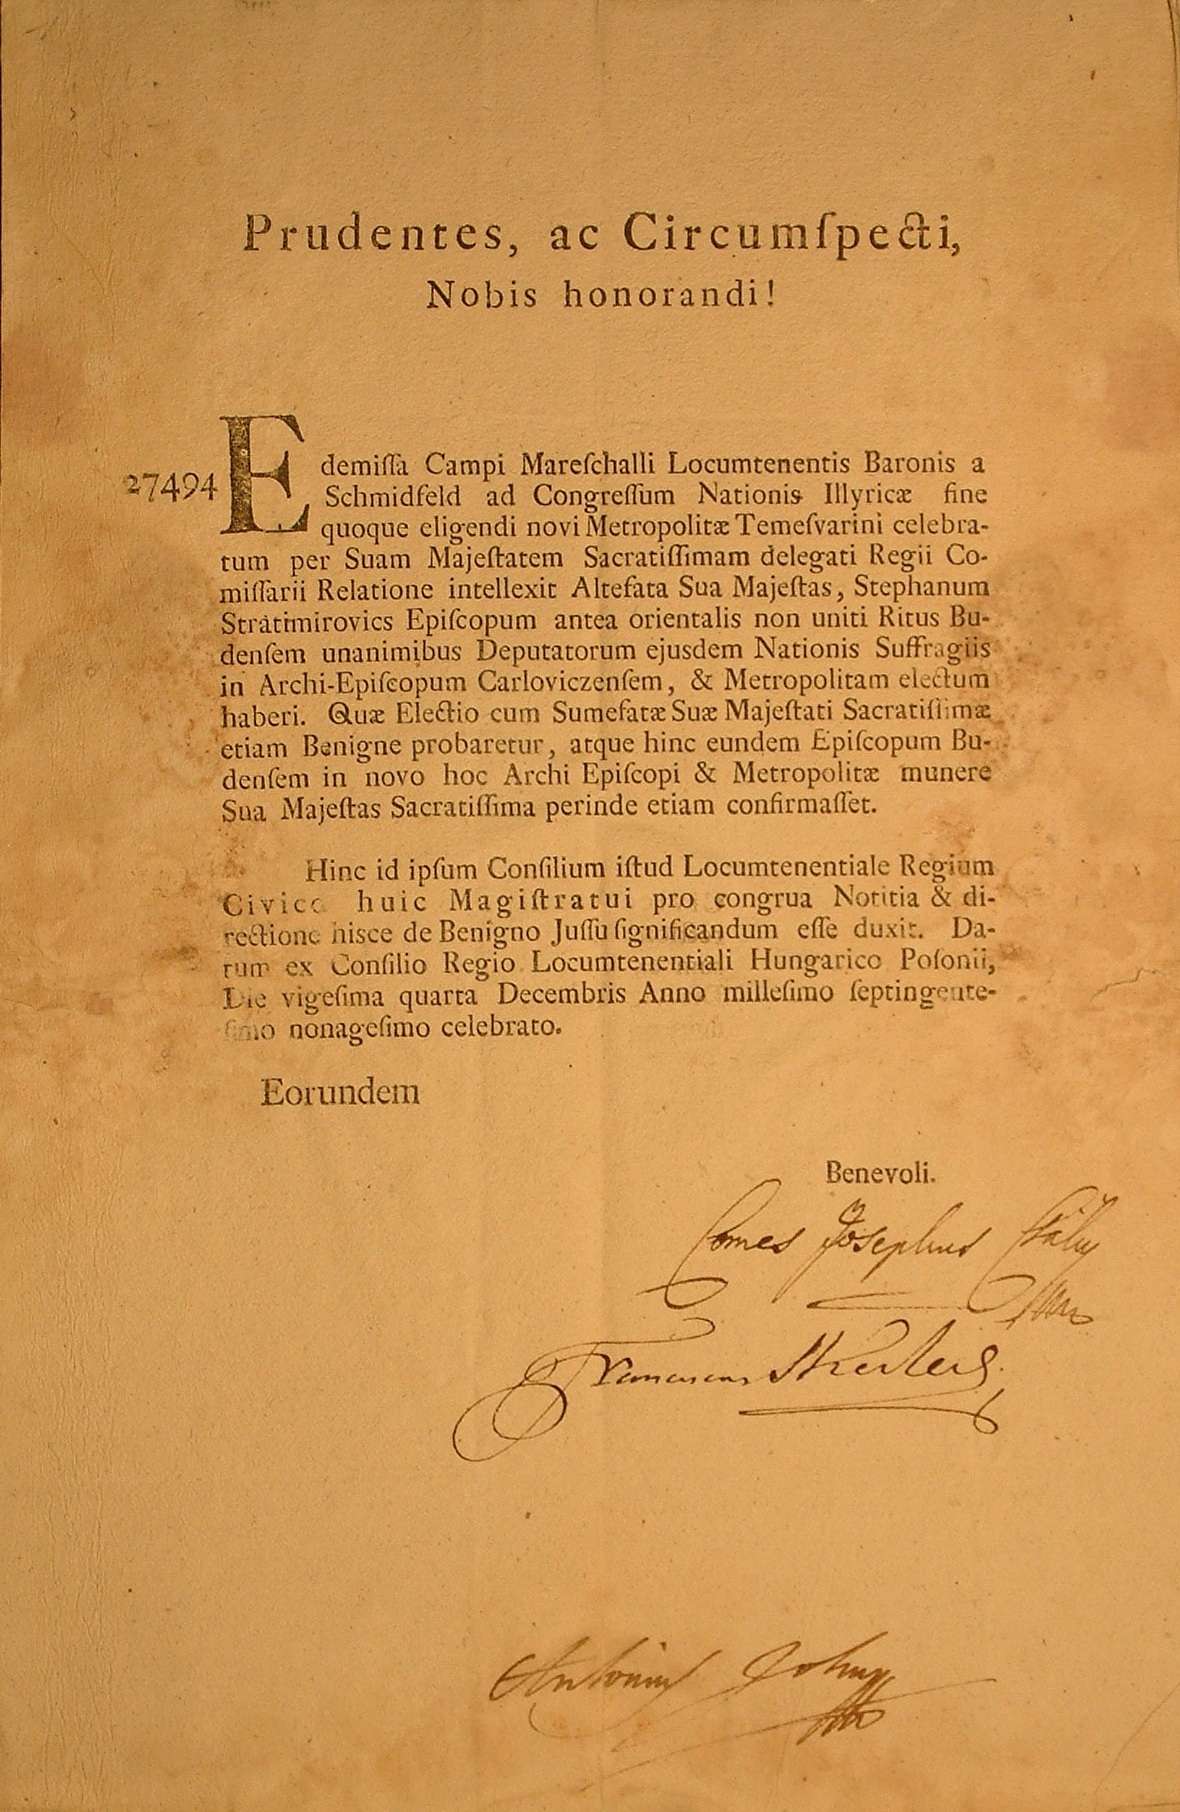 Prudentes, ac Circumſpecti,
Nobis honorandi!
27494
Edemiſſa Campi Mareſchalli Locumtenentis Baronis a
Schmidfeld ad Congreſſum Nationis Illyricæ fine
quoque eligendi novi Metropolitæ Temeſvarini celebra-
tum per Suam Majeſtatem Sacratiſſimam delegati Regii Co-
miſſarii Relatione intellexit Altefata Sua Majeſtas, Stephanum
Stratimirovics Epiſcopum antea orientalis non uniti Ritus Bu-
denſem unanimibus Deputatorum ejusdem Nationis Suffragiis
in Archi-Epiſcopum Carloviczenſem, & Metropolitam electum
haberi. Quæ Electio cum Sumefatæ Suæ Majeſtati Sacratiſſimæ
etiam Benigne probaretur, atque hinc eundem Epiſcopum Bu-
denſem in novo hoc Archi Epiſcopi & Metropolitæ munere
Sua Majeſtas Sacratiſſima perinde etiam confirmaſſet.
Hinc id ipſum Conſilium iſtud Locumtenentiale Regium
Civico huic Magiſtratui pro congrua Notitia & di-
rectione hisce de Benigno Juſſu ſignificandum eſſe duxit. Da-
tum ex Conſilio Regio Locumtenentiali Hungarico Poſonii,
Die vigeſima quarta Decembris Anno milleſimo ſeptingente-
ſimo nonageſimo celebrato.
Eorundem
Benevoli.
Comes Josephus Csáky
Franciscus Skerlecz
Antonius